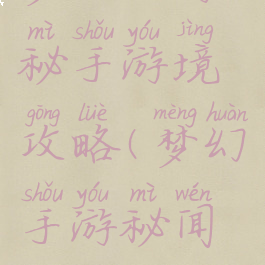 mì shǒu yóu jìng
秘手游境
gōng lüè mèng huàn
攻略(梦幻
shǒu yóu mì wén
手游秘闻